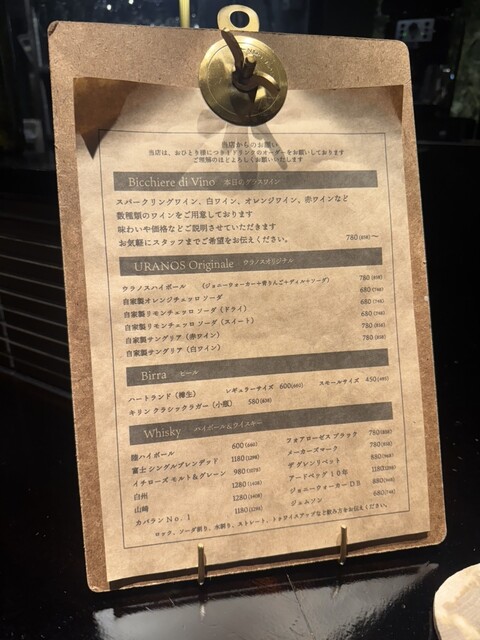 当店からのお願い
当店は、おひとり様につき1ドリンクのオーダーをお願いしております
ご理解のほどよろしくお願いいたします
Bicchiere di Vino 本日のグラスワイン
スパークリングワイン、白ワイン、オレンジワイン、赤ワインなど
数種類のワインをご用意しております
味わいや価格などご説明させていただきます
お気軽にスタッフまでご希望をお伝えください。 780(858)～
URANOS Originale ウラノスオリジナル
ウラノスハイボール (ジョニーウォーカー+青りんご+ディル+ソーダ) 780(858)
自家製オレンジチェッロ ソーダ 680(748)
自家製リモンチェッロ ソーダ (ドライ) 680(748)
自家製リモンチェッロ ソーダ (スイート) 680(748)
自家製サングリア (赤ワイン) 780(858)
自家製サングリア (白ワイン) 780(858)
Birra ビール
ハートランド (樽生) レギュラーサイズ 600(660) スモールサイズ 450(495)
キリン クラシックラガー (小瓶) 580(638)
Whisky ハイボール&ウイスキー
陸ハイボール 600(660)
富士 シングルブレンデッド 1180(1298)
イチローズ モルト&グレーン 980(1078)
白州 1280(1408)
山崎 1280(1408)
カバラン No.1 1180(1298)
フォアローゼス ブラック 780(858)
メーカーズマーク 780(858)
ザ グレンリベット 880(968)
アードベッグ 10年 1180(1298)
ジョニーウォーカー DB 880(968)
ジェムソン 680(748)
ロック、ソーダ割り、水割り、ストレート、トゥワイスアップなど飲み方をお伝えください。